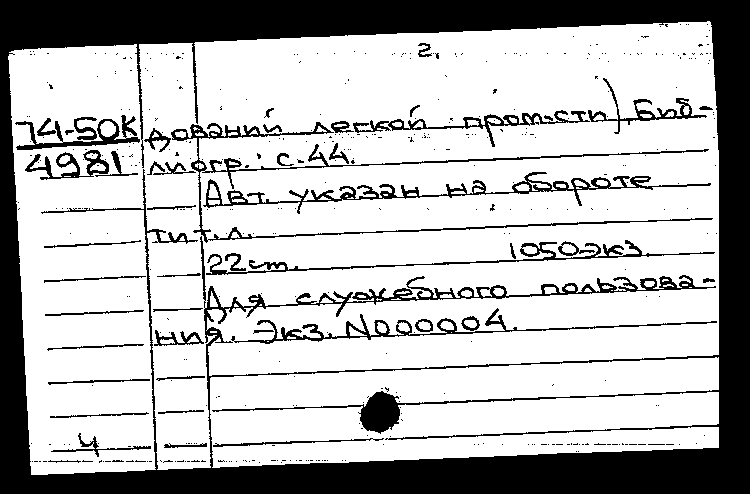 2.
74-50К дований легкой пром-сти). Биб-
4981 лиогр.: с.44.
Авт. указан на обороте
тит.л.
22 см. 1050 экз.
Для служебного пользова-
ния. Экз. N000004.
4